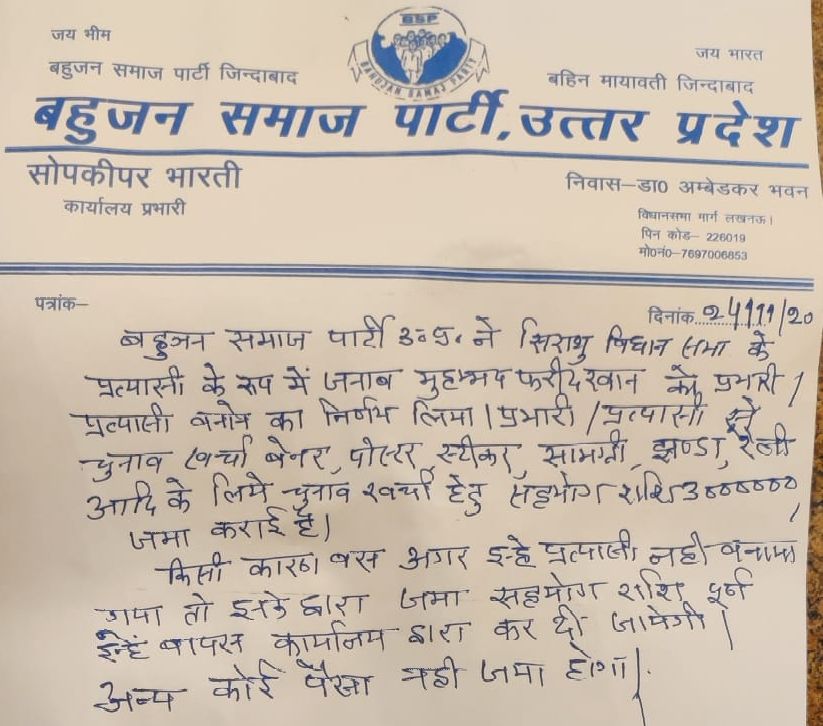 जय भीम
BSP
BAHUJAN SAMAJ PARTY
जय भारत
बहुजन समाज पार्टी जिन्दाबाद
बहिन मायावती जिन्दाबाद
बहुजन समाज पार्टी, उत्तर प्रदेश
सोपकीपर भारती
कार्यालय प्रभारी
निवास–डा0 अम्बेडकर भवन
विधानसभा मार्ग लखनऊ।
पिन कोड– 226019
मो0नं0–7697006853
पत्रांक–
दिनांक 24/11/20
बहुजन समाज पार्टी उ॰ प्र॰ ने सिराथु विधान सभा के
प्रत्यासी के रूप में जनाब मुहम्मद फरीद खान को प्रभारी/
प्रत्यासी बनाने का निर्णय लिया। प्रभारी/प्रत्यासी
चुनाव खर्चा बेनर, पोस्टर, स्टीकर, सामग्री, झण्डा, रैली
आदि के लिये चुनाव खर्चा हेतु सहयोग राशि
जमा कराई है।
किसी कारण बस अगर इन्हे प्रत्यासी नही बनाया
गया तो इनके द्वारा जमा सहयोग राशि पूर्ण
इन्हें वापस कार्यालय द्वारा कर दी जायेगी।
अन्य कोई पैसा नही जमा होगा।